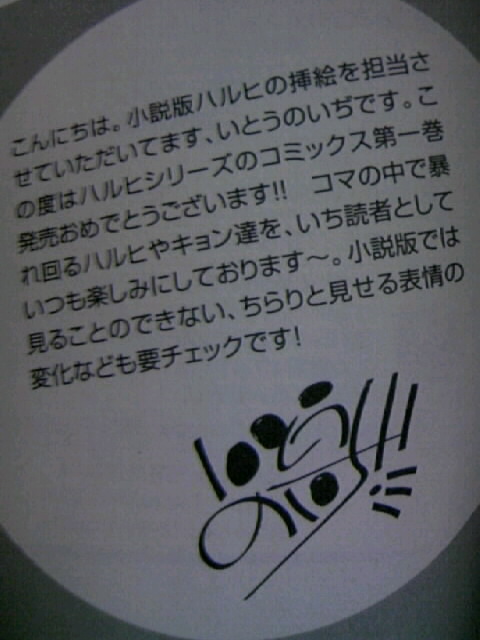 こんにちは。小説版ハルヒの挿絵を担当さ
せていただいてます、いとうのいぢです。こ
の度はハルヒシリーズのコミックス第一巻
発売おめでとうございます!!　コマの中で暴
れ回るハルヒやキョン達を、いち読者として
いつも楽しみにしております〜。小説版では
見ることのできない、ちらりと見せる表情の
変化なども要チェックです!
いとう
のいぢ